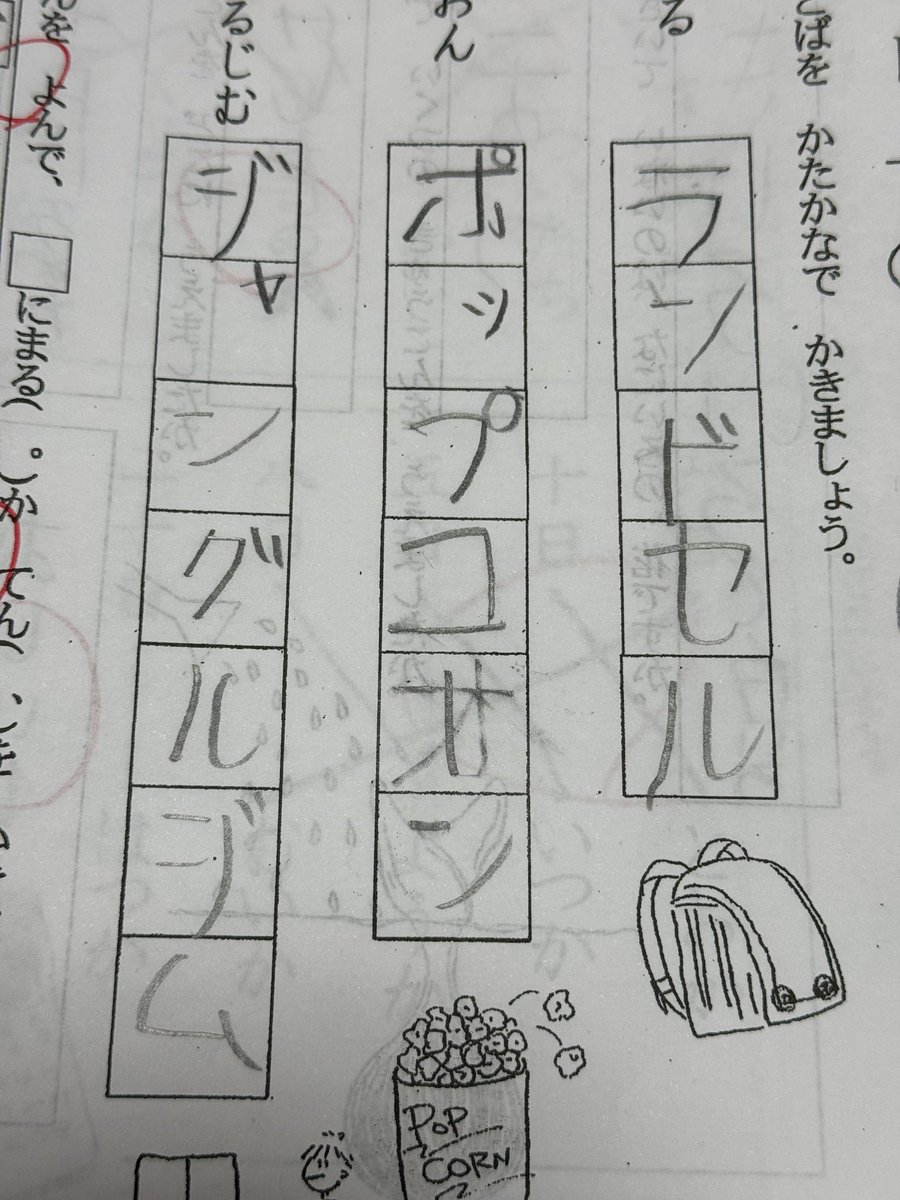 ばを かたかなで かきましょう。
る
ランドセル
おん
ポップコオン
POP
CORN
るじむ
ジャングルジム
を よんで、□にまる(。)か てん(、)